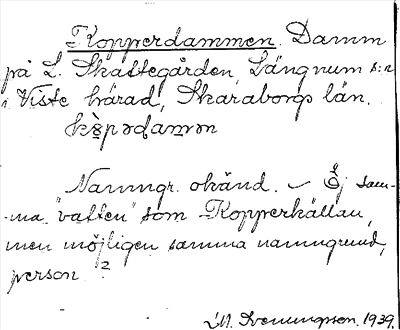 Kopperdammen. Damm
på L. Skattegården, Längnum s:n
i Viste härad, Skaraborgs län.
Namngr. okänd. – Ej sam-
ma "vatten" som Kopperkällan,
men möjligen samma namngrund,
person?
1939.